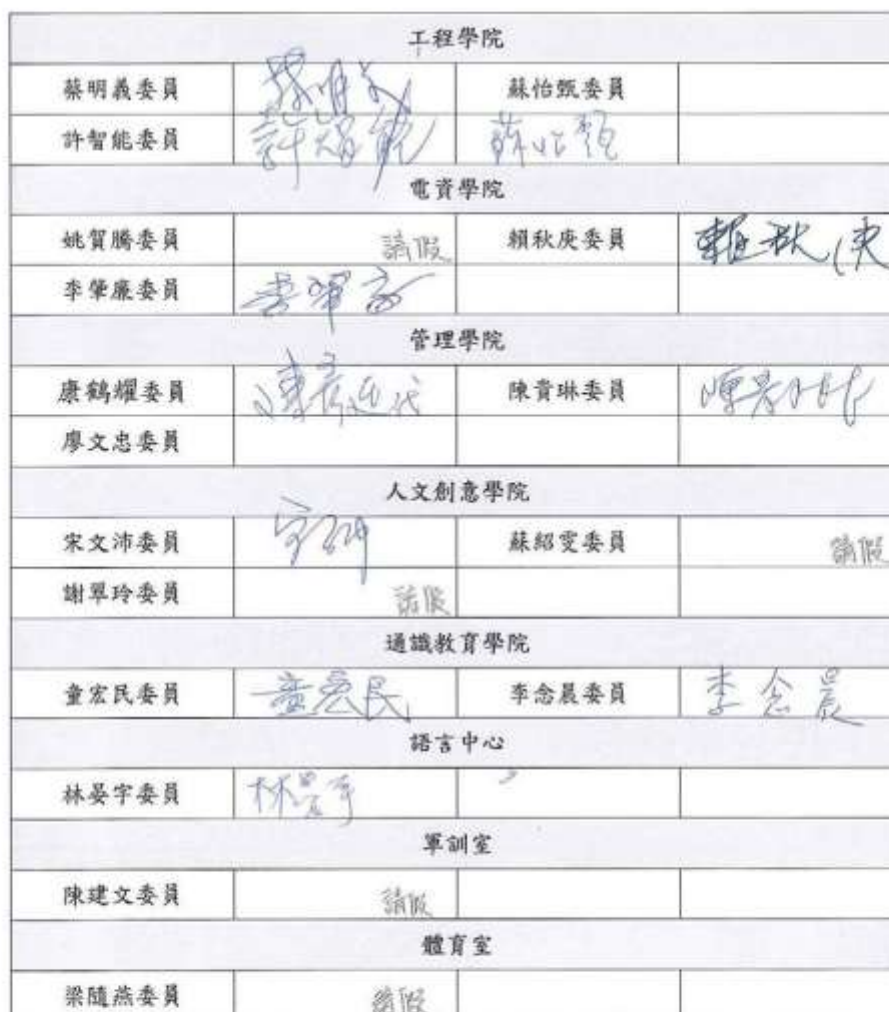 工程學院
蔡明義委員 蔡明義 蘇怡甄委員
許智能委員 許智能 蘇怡甄
電資學院
姚賀騰委員 請假 賴秋庚委員 賴秋庚
李肇廉委員 李肇廉
管理學院
康鶴耀委員 代 陳貴琳委員 陳貴琳
廖文忠委員
人文創意學院
宋文沛委員 蘇紹雯委員 請假
謝翠玲委員 請假
通識教育學院
童宏民委員 童宏民 李念晨委員 李念晨
語言中心
林晏宇委員 林晏宇
軍訓室
陳建文委員 請假
體育室
梁隨燕委員 請假